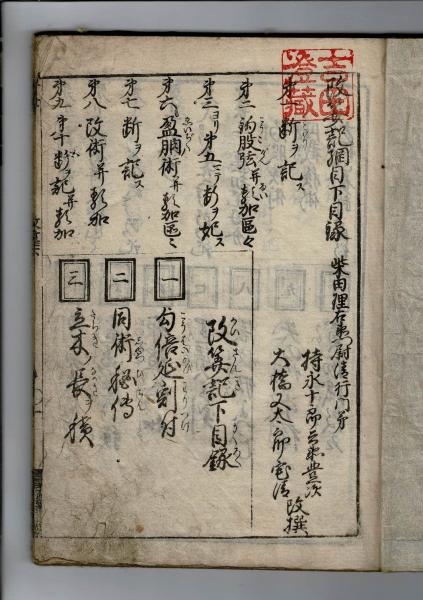 改算記綱目下目録 柴田理右衛門尉清行門弟
持永十郎兵衛豊次
大橋又太郎宅清 改撰
第一 断ヲ記ス
第二 鈎股弦并類加區々
第三ヨリ第五ニテ断ヲ記ス
第六 盈朒術并類加區々
第七 断ヲ記ス
第八 改術并類加
第九 第十断ヲ記并類加
改算記下目録
一 勾倍延割付
二 同術秘傳
三 立木ノ長ヲ積